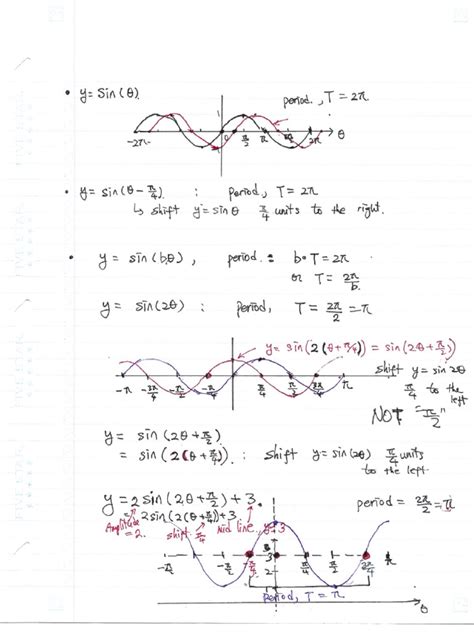 • y = Sin(θ).
period., T = 2π
1
-2π
0
π/2
π
2π
θ
• y = sin(θ - π/4) : period, T = 2π
↳ shift y = sinθ π/4 units to the right.
• y = sin(bθ), period : b·T = 2π
or T = 2π/b.
y = sin(2θ) : Period, T = 2π/2 = π
y = sin(2(θ + π/4)) = sin(2θ + π/2)
shift y = sin 2θ
π/4 to the left
NOT "π/2"
-π
-3π/4
-π/2
π/4
π/2
3π/4
π
y = sin(2θ + π/2)
= sin(2(θ + π/4)). : shift y = sin(2θ) π/4 units
to the left.
y = 2 sin(2θ + π/2) + 3.
= 2 sin(2(θ + π/4)) + 3
period = 2π/2 = π
Amplitude = 2.
shift π/4
Mid line y = 3
3
2
-π/2
-π/4
π/4
π/2
3π/4
period, T = π
θ